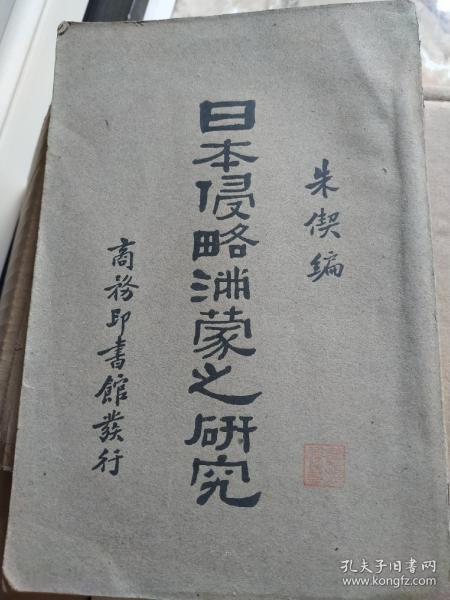 朱偰編
日本侵略满蒙之研究
商務印書館發行
孔夫子旧书网
www.kongfz.com